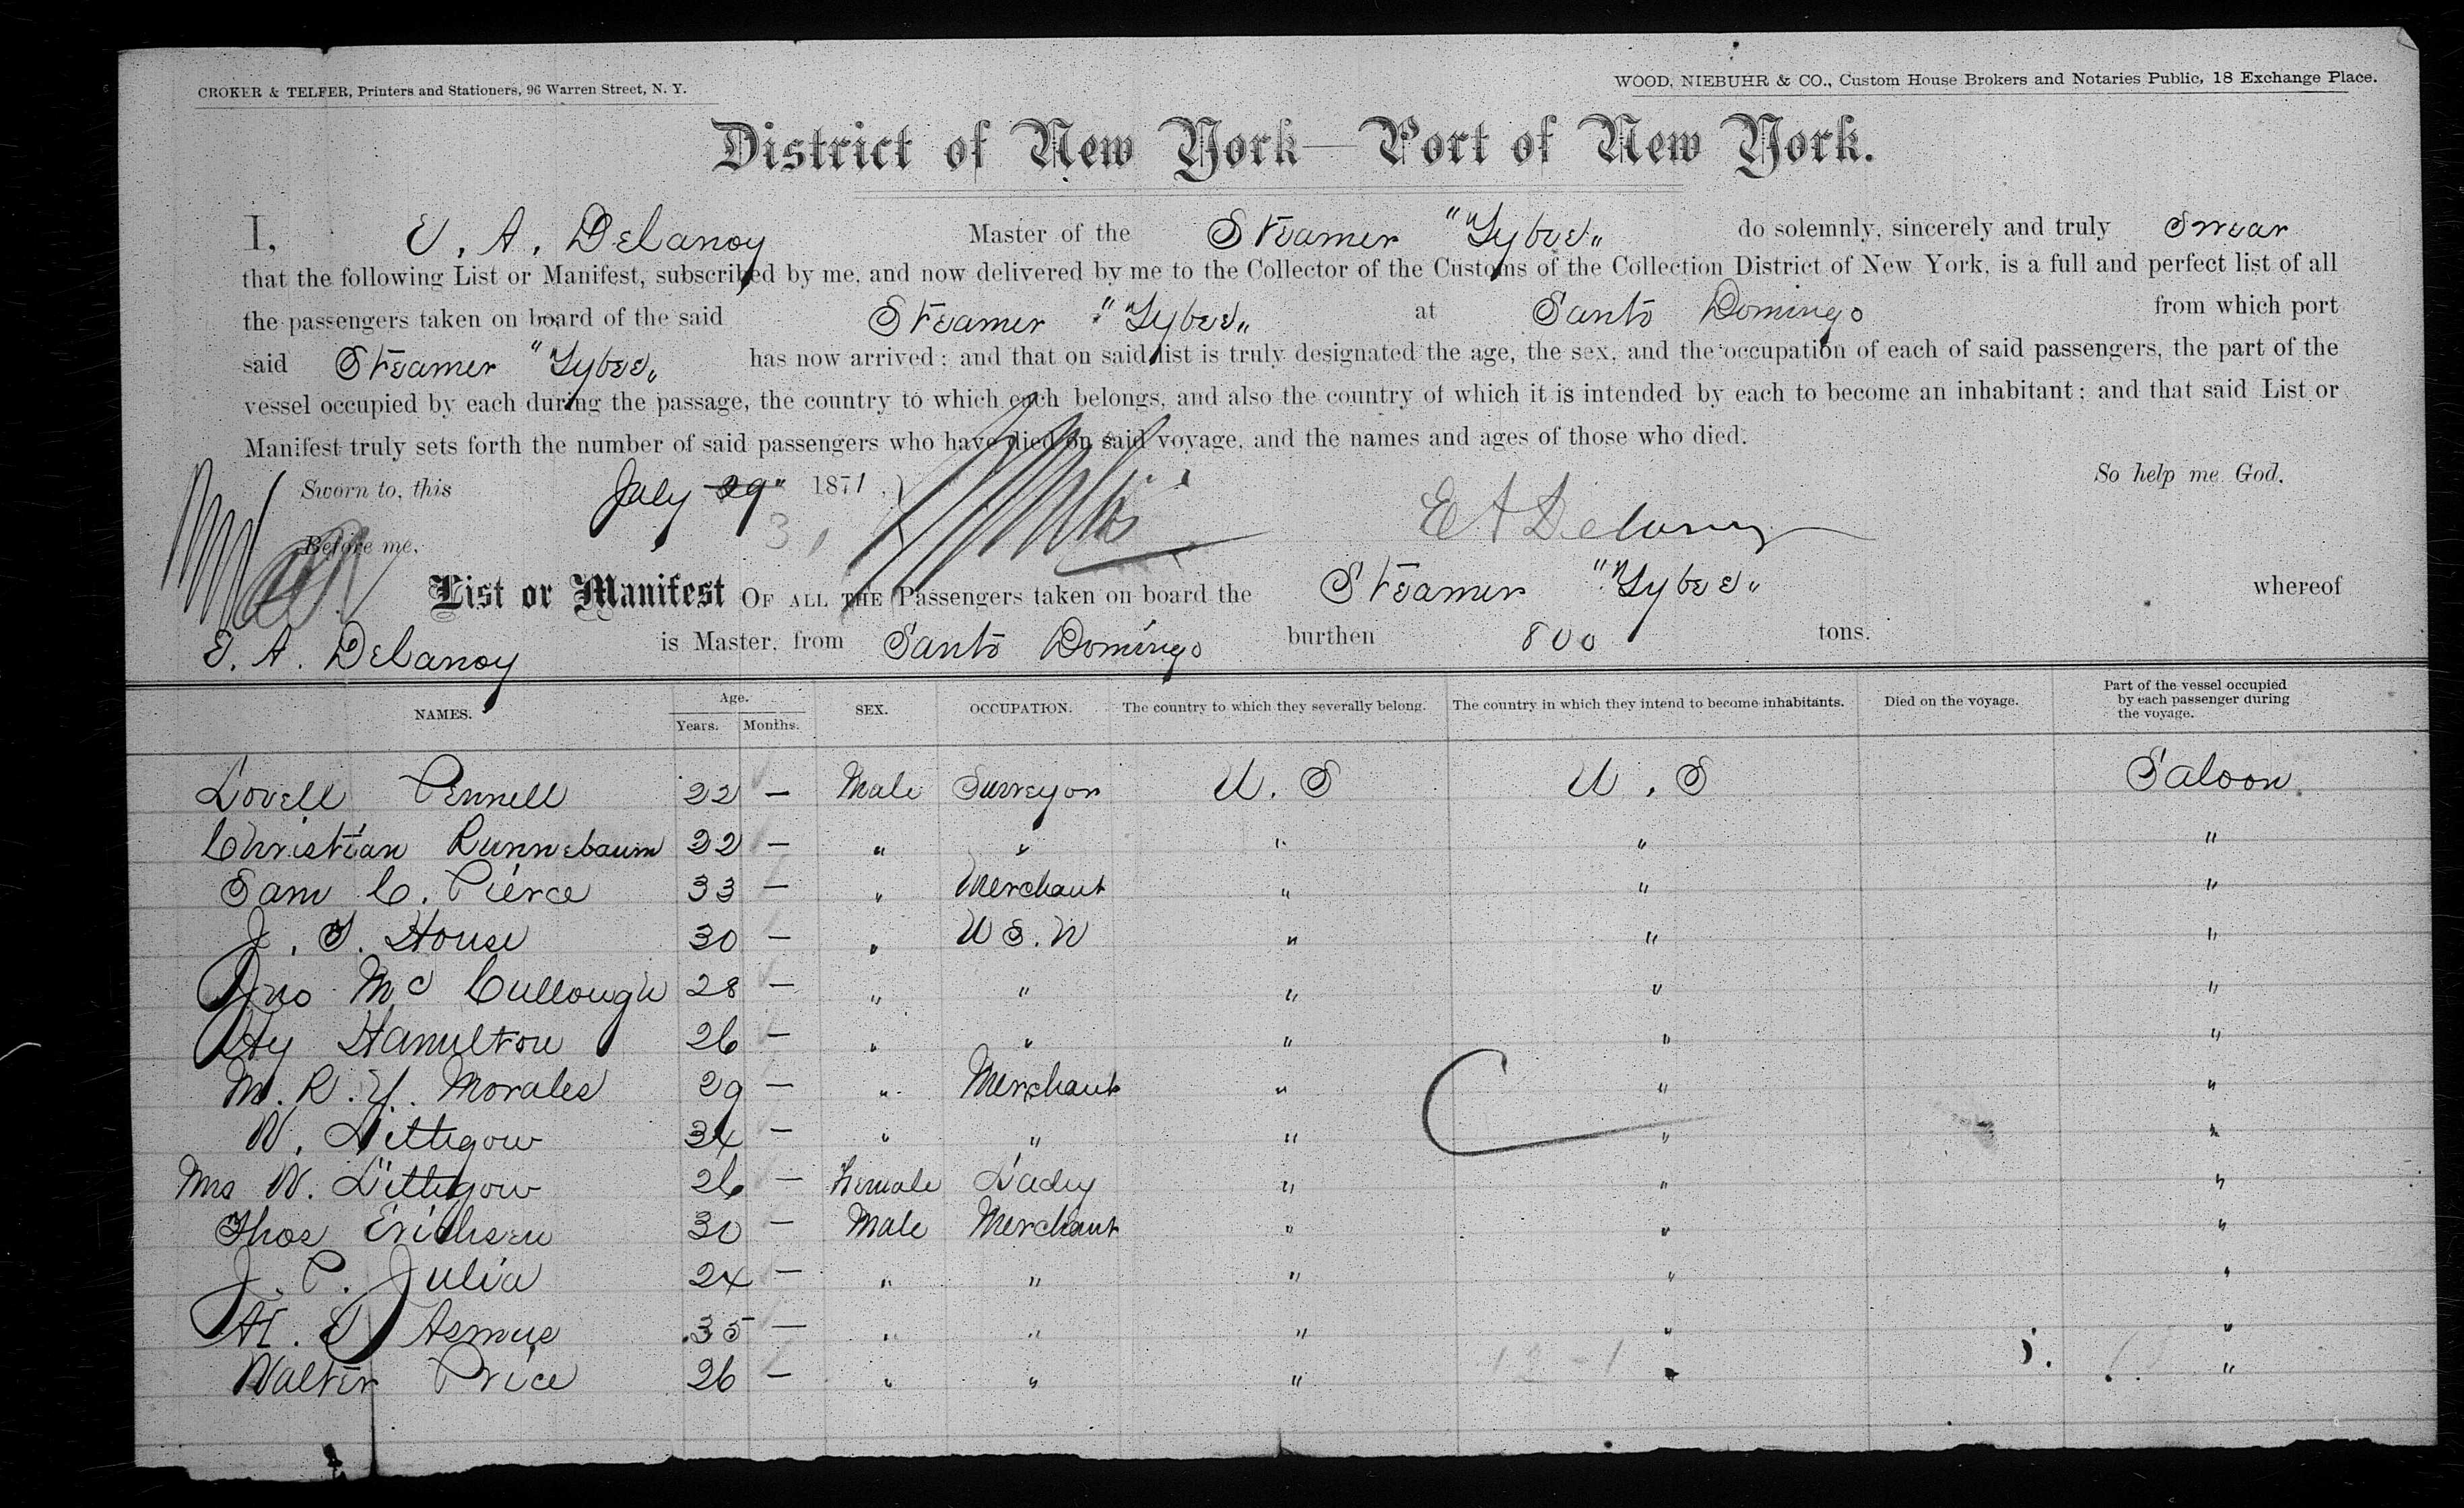 CROKER & TELFER, Printers and Stationers, 96 Warren Street, N. Y.
WOOD, NIEBUHR & CO., Custom House Brokers and Notaries Public, 18 Exchange Place.
District of New York—Port of New York.
I, E. A. Delanoy Master of the Steamer "Tybee" do solemnly, sincerely and truly Swear
that the following List or Manifest, subscribed by me, and now delivered by me to the Collector of the Customs of the Collection District of New York, is a full and perfect list of all
the passengers taken on board of the said Steamer "Tybee" at Santo Domingo from which port
said Steamer "Tybee" has now arrived; and that on said list is truly designated the age, the sex, and the occupation of each of said passengers, the part of the
vessel occupied by each during the passage, the country to which each belongs, and also the country of which it is intended by each to become an inhabitant; and that said List or
Manifest truly sets forth the number of said passengers who have died on said voyage, and the names and ages of those who died.
So help me God.
Sworn to, this July 29" 1871.
31
E A Delanoy
Before me,
List or Manifest OF ALL THE Passengers taken on board the Steamer "Tybee" whereof
E. A. Delanoy is Master, from Santo Domingo burthen 800 tons.
NAMES. Age. Years. Months. SEX. OCCUPATION. The country to which they severally belong. The country in which they intend to become inhabitants. Died on the voyage. Part of the vessel occupied by each passenger during the voyage.
Lovell Pennell 22 — Male Surveyor U. S U. S Saloon
Christian Runnebaum 22 — " " " " "
Sam C. Pierce 33 — " Merchant " " "
J. T. House 30 — " U S. N " " "
Jno Mc Cullough 28 — " " " " "
Hy Hamilton 26 — " " " " "
M. R. Y. Morales 29 — " Merchant " " "
W. Littigow 34 — " " " " "
Mrs W. Littigow 26 — Female Lady " " "
Thos Erichsen 30 — Male Merchant " " "
J. P. Julia 24 — " " " " "
H. Asmus 35 — " " " " "
Walter Price 26 — " " " " "